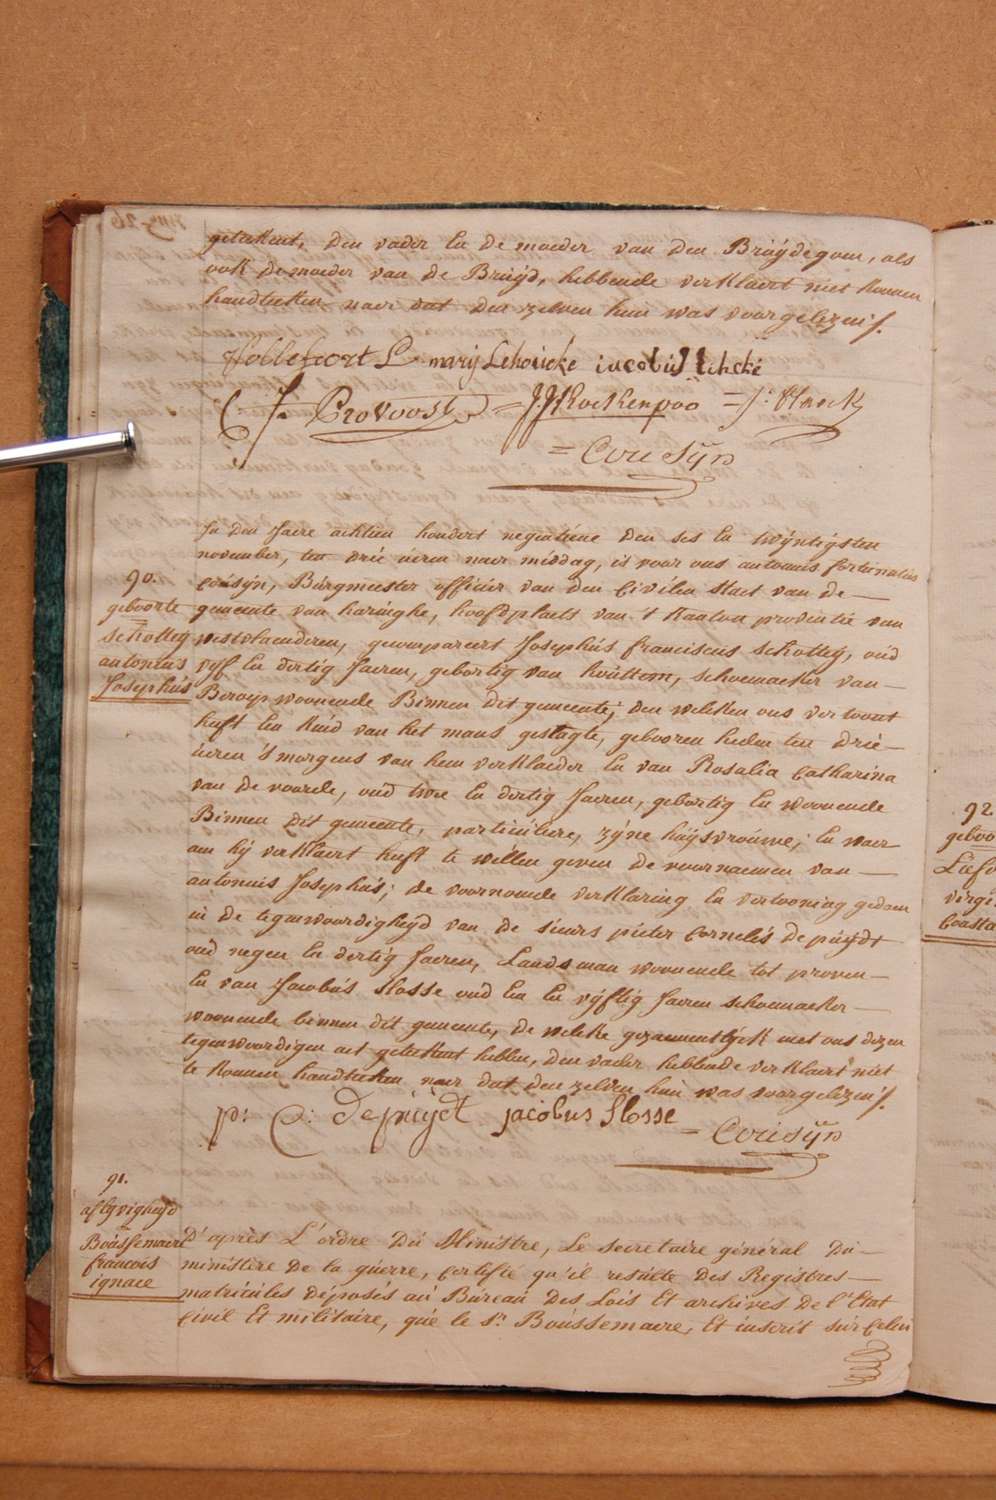 geteekent, den vader en de moeder van den Brúÿdegom, als
ook de moeder van de Brúÿd, hebbende verklaert niet konnen
handteeken naer dat den zelven hun was voorgelezen /.
follefoort L marij Lehoücke iacobus
J. Provoost = JJ Rockenpoo = J: Hanck
= Cousÿn
In den Jaere achtien hondert negentiene den ses en twÿntigsten
november, ten drie úeren naer middag, is voor ons antonius fortunatus
coúsÿn, Búrgmeester officier van den Civilen Staet van de
gemeente van haringhe, hoofdplaets van 't Kanton provintie van
westvlaenderen, gecompareert Josephús franciscus schotteÿ, oúd
vÿf en dertig Jaeren, gebortig van hoúttem, schoemaeker van
Beroep woonende Binnen dit gemeente; den welken ons vertoont
heeft een kind van het mans geslagte, gebooren heden ten drie
úeren 's morgens van hem verklaeder en van Rosalia Catharina
van de voorde, oúd twee en dertig Jaeren, gebortig en woonende
Binnen dit gemeente, particúliere, zÿne húÿsvroúwe; en waer
aen hÿ verklaert heeft te willen geven de voornaemen van
antonius Josephús; de voornoemde verklaring en vertooning gedaen
in de tegenwoordighÿd van de sieurs pieter Cornelis Depúÿdt
oud negen en dertig Jaeren, Landsman woonende tot proven
en van Jacobús Slosse oud een en vÿftig Jaeren schoemaeker
woonende binnen dit gemeente, de welke gezaementlÿck met ons dezen
tegenwoordigen act geteekent hebben, den vader hebbende verklaert niet
te konnen handteeken naer dat den zelven hun was voorgelezen /.
p: C: Depuijdt jacobus Slosse = Cousÿn
90.
geboorte
schotteÿ
antonius
Josephús
91.
aflÿvigheÿd
Boússemaere
francois
ignace
D'après L'ordre Dú Ministre, Le secretaire général Dú
ministère de la gúerre, certifie qu'il resúlte des Registres
matricúles déposés aú Búreaú Des Lois Et archives de l'Etat
Civil Et militaire, qúe le sr. Boússemaere, Et inscrit súr Celui
92
geboo
Lafo
virgi
Consta